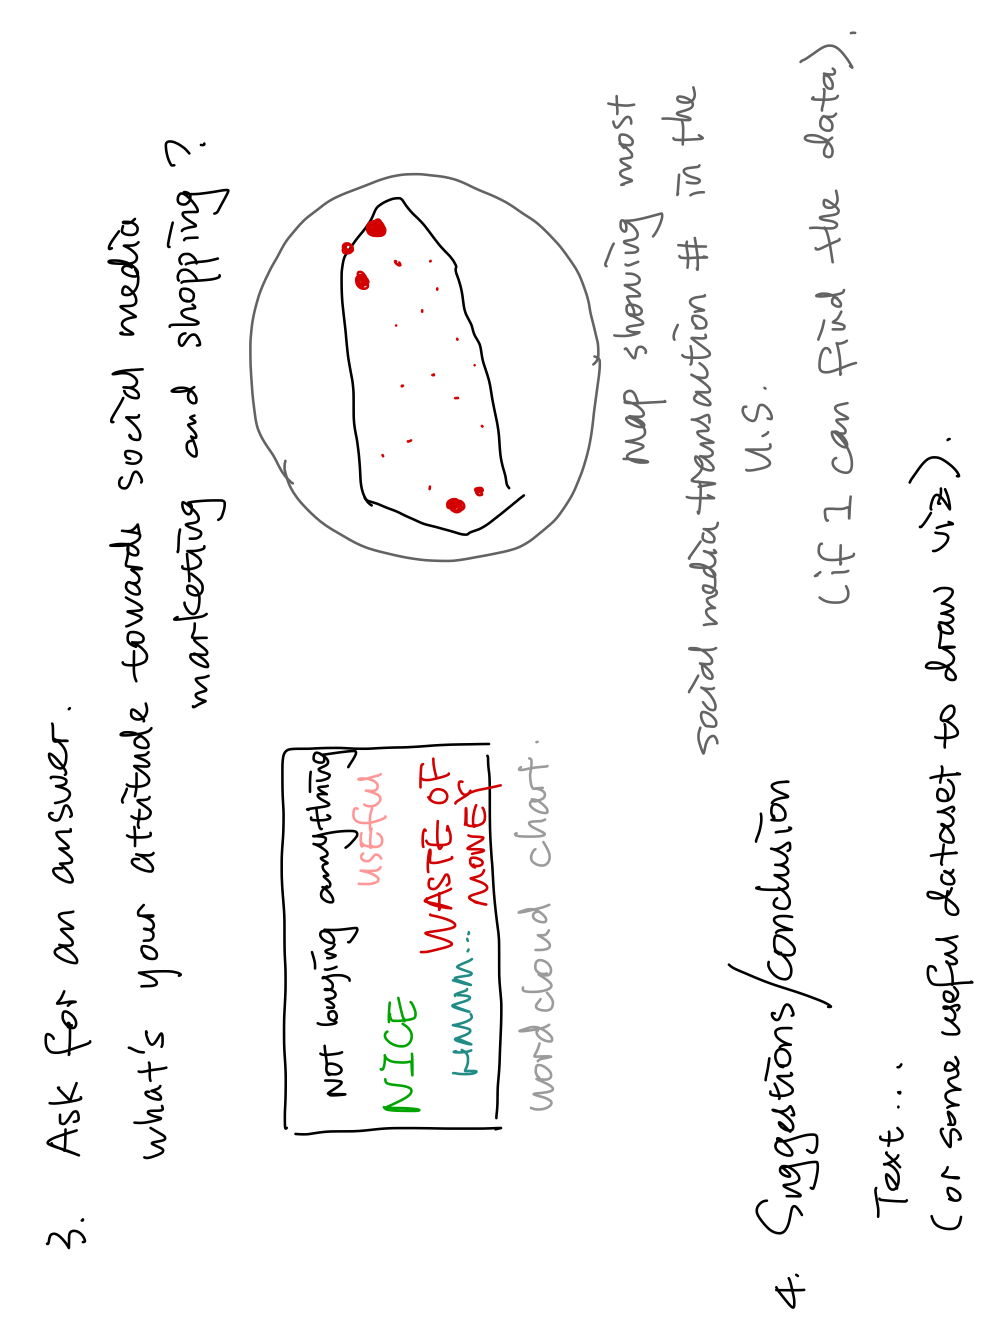 3. Ask for an answer.
what's your attitude towards social media
marketing and shopping?
Not buying anything
USEful
NICE
WASTE OF
MONEY
HMMM...
wordcloud chart.
Map showing most
social media transaction # in the
U.S.
(if I can find the data).
4. Suggestions/conclusion
Text...
(or some useful dataset to draw viz).